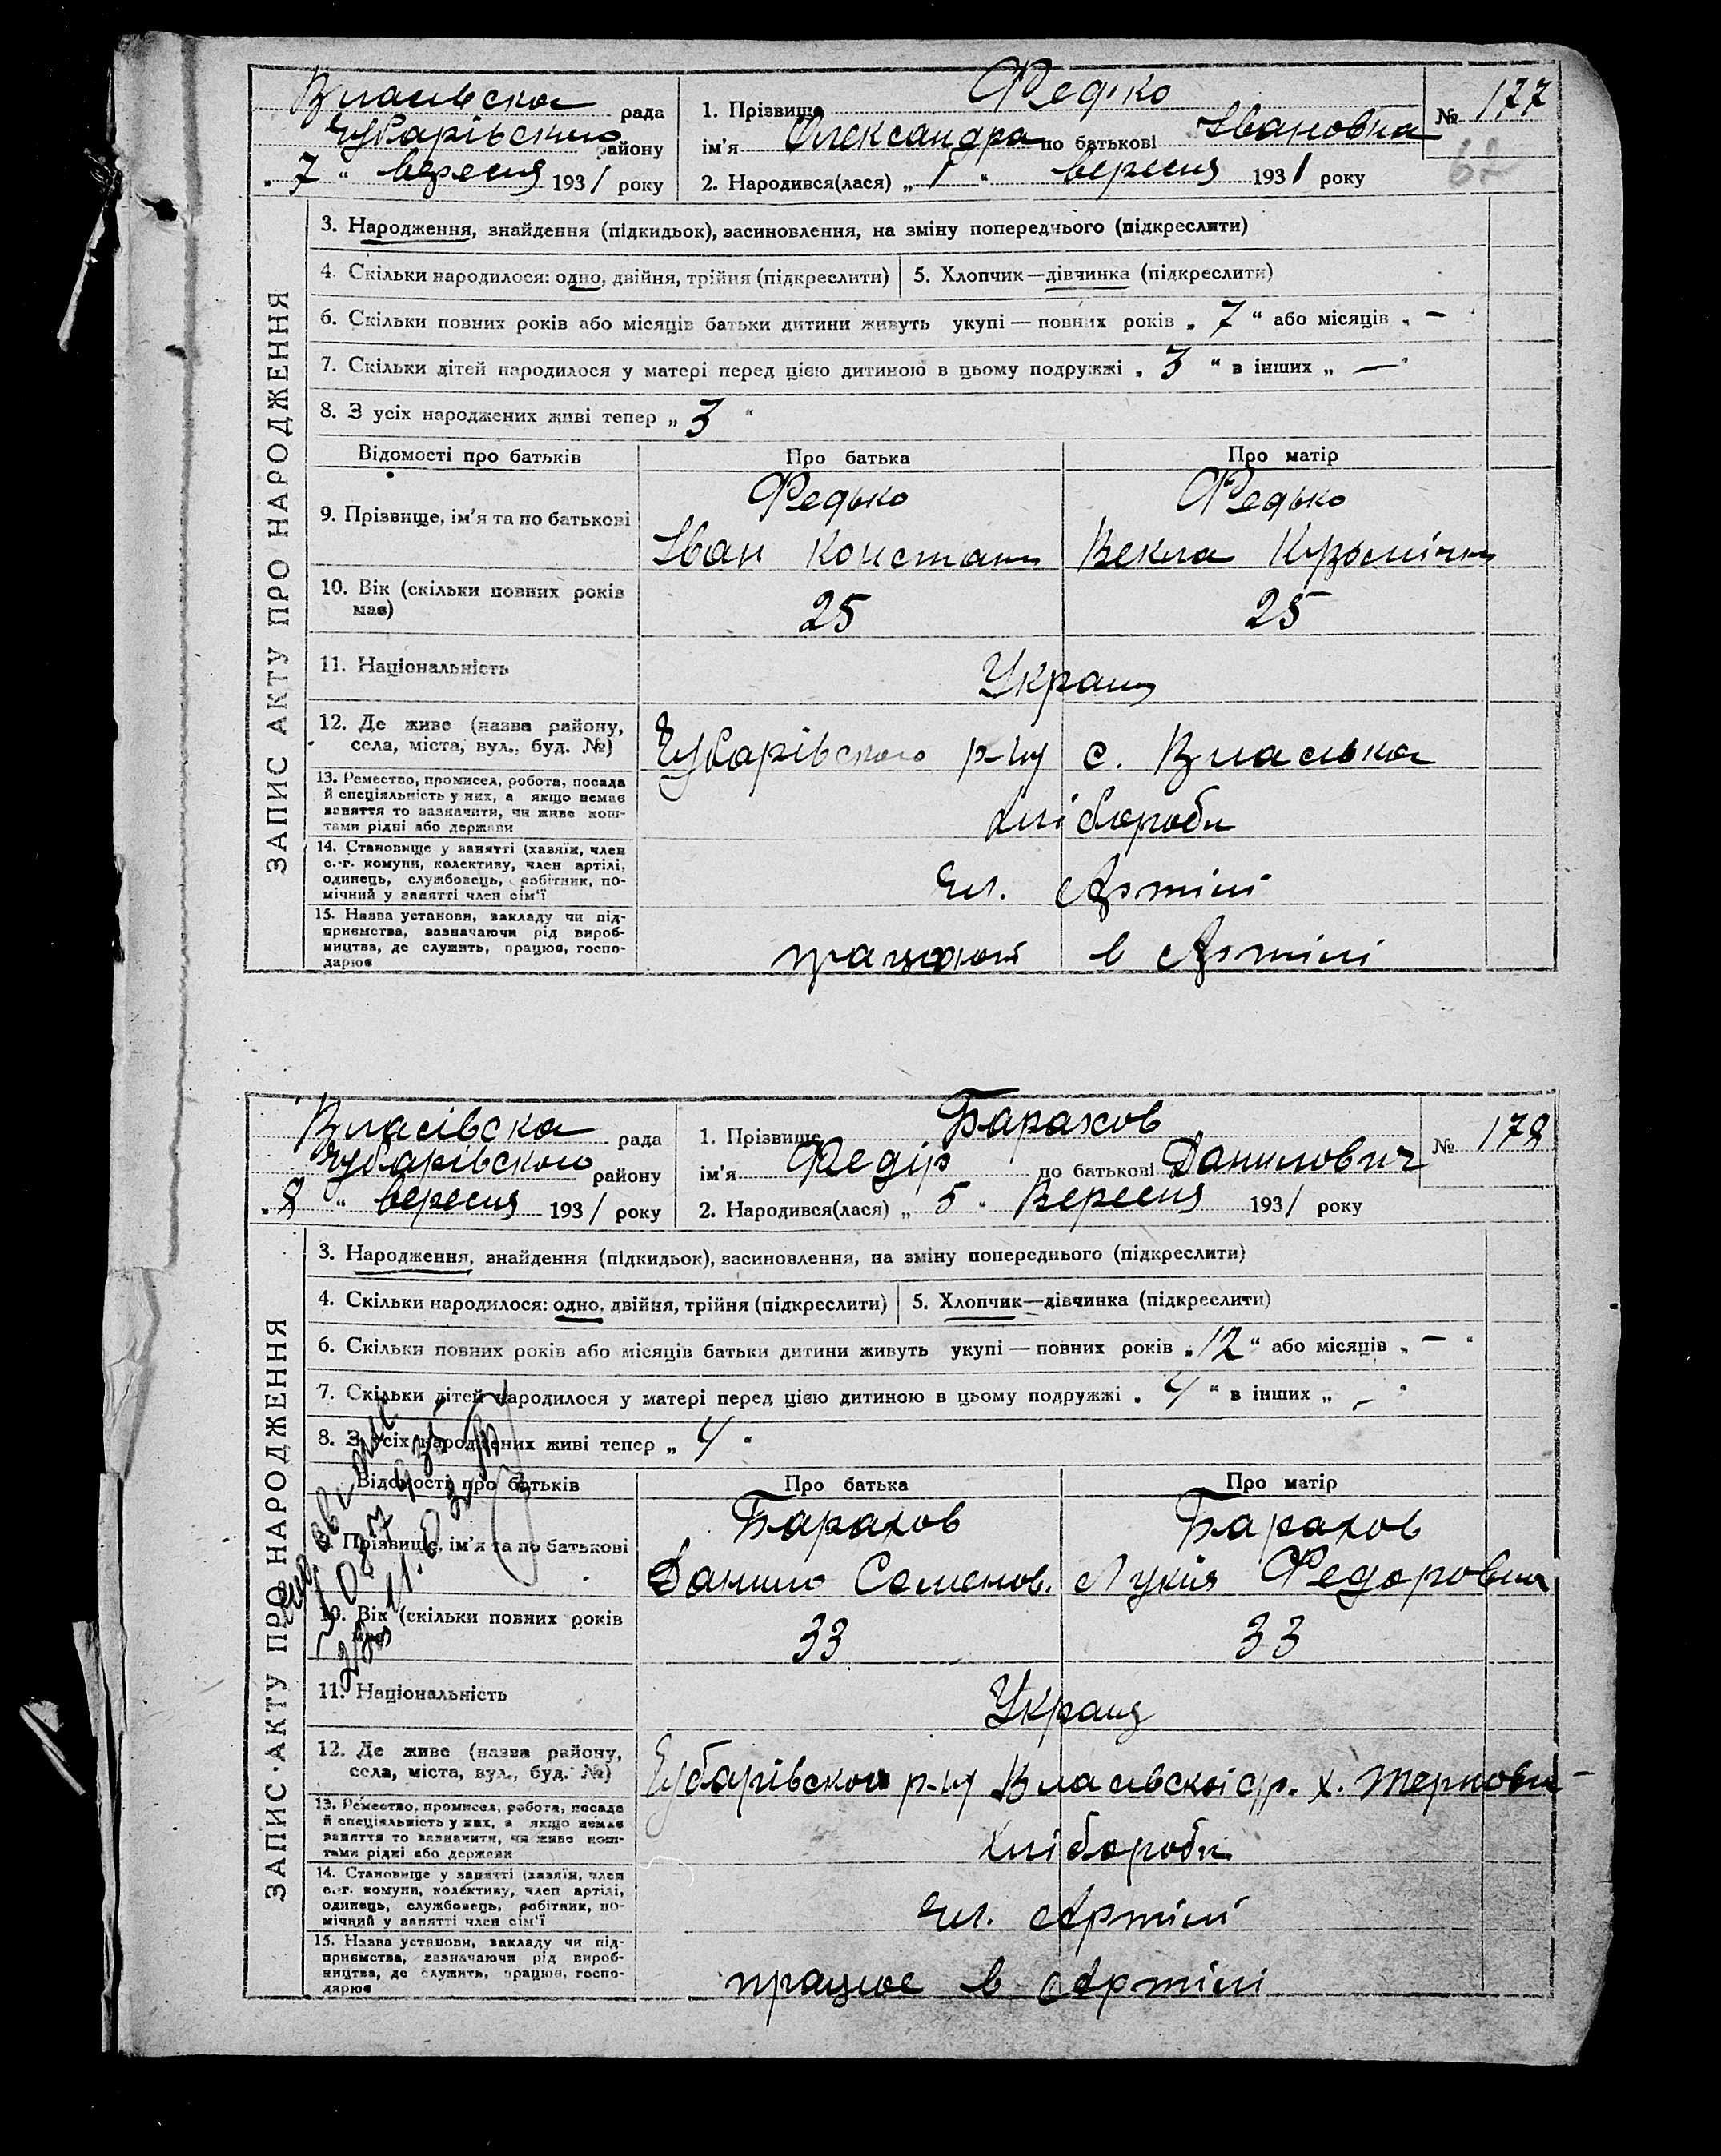 Власівска рада
Чубарівського району
„ 7 “ вересня 1931 року
1. Прізвище Федько
ім'я Олександра по батькові Івановна
2. Народився(лася) „ 1 “ вересня 1931 року
№ 177
62
ЗАПИС АКТУ ПРО НАРОДЖЕННЯ
3. Народження, знайдення (підкидьок), засиновлення, на зміну попереднього (підкреслити)
4. Скільки народилося: одно, двійня, трійня (підкреслити) 5. Хлопчик—дівчинка (підкреслити)
6. Скільки повних років або місяців батьки дитини живуть укупі — повних років „ 7 “ або місяців „ — “
7. Скільки дітей народилося у матері перед цією дитиною в цьому подружжі „ 3 “ в інших „ — “
8. З усіх народжених живі тепер „ 3 “
Відомості про батьків Про батька Про матір
9. Прізвище, ім'я та по батькові
Федько Федько
Іван Констант Векла Кузьмічн
10. Вік (скільки повних років має) 25 25
11. Національність Украін
12. Де живе (назва району, села, міста, вул., буд. №)
Чубарівского р-ну с. Власівка
13. Ремество, промисел, робота, посада й спеціяльність у них, а якщо немає заняття то зазначити, чи живе коштами рідні або держави
хлібороби
14. Становище у занятті (хазяїн, член с.-г. комуни, колективу, член артілі, одинець, службовець, робітник, помічний у занятті член сім'ї
Чл. Артілі
15. Назва установи, закладу чи підприємства, зазначаючи рід виробництва, де служить, працює, господарює
в Артілі
Власівска рада
Чубарівского району
„ 8 “ вересня 1931 року
1. Прізвище Барахов
ім'я Федір по батькові Данилович
2. Народився(лася) „ 5 “ Вересня 1931 року
№ 178
ЗАПИС АКТУ ПРО НАРОДЖЕННЯ
3. Народження, знайдення (підкидьок), засиновлення, на зміну попереднього (підкреслити)
4. Скільки народилося: одно, двійня, трійня (підкреслити) 5. Хлопчик—дівчинка (підкреслити)
6. Скільки повних років або місяців батьки дитини живуть укупі — повних років „ 12 “ або місяців „ — “
7. Скільки дітей народилося у матері перед цією дитиною в цьому подружжі „ 4 “ в інших „ — “
8. З усіх народжених живі тепер „ 4 “
Відомості про батьків Про батька Про матір
9. Прізвище, ім'я та по батькові
Барахов Барахов
Данило Семенов. Лукія Федоровна
10. Вік (скільки повних років має) 33 33
11. Національність Украін
12. Де живе (назва району, села, міста, вул., буд. №)
Чубарівского р-ну Власівскої с/р. х. Терновк
13. Ремество, промисел, робота, посада й спеціяльність у них, а якщо немає заняття то зазначити, чи живе коштами рідні або держави
хлібороби
14. Становище у занятті (хазяїн, член с.-г. комуни, колективу, член артілі, одинець, службовець, робітник, помічний у занятті член сім'ї
Чл. Артілі
15. Назва установи, закладу чи підприємства, зазначаючи рід виробництва, де служить, працює, господарює
працює в Артілі